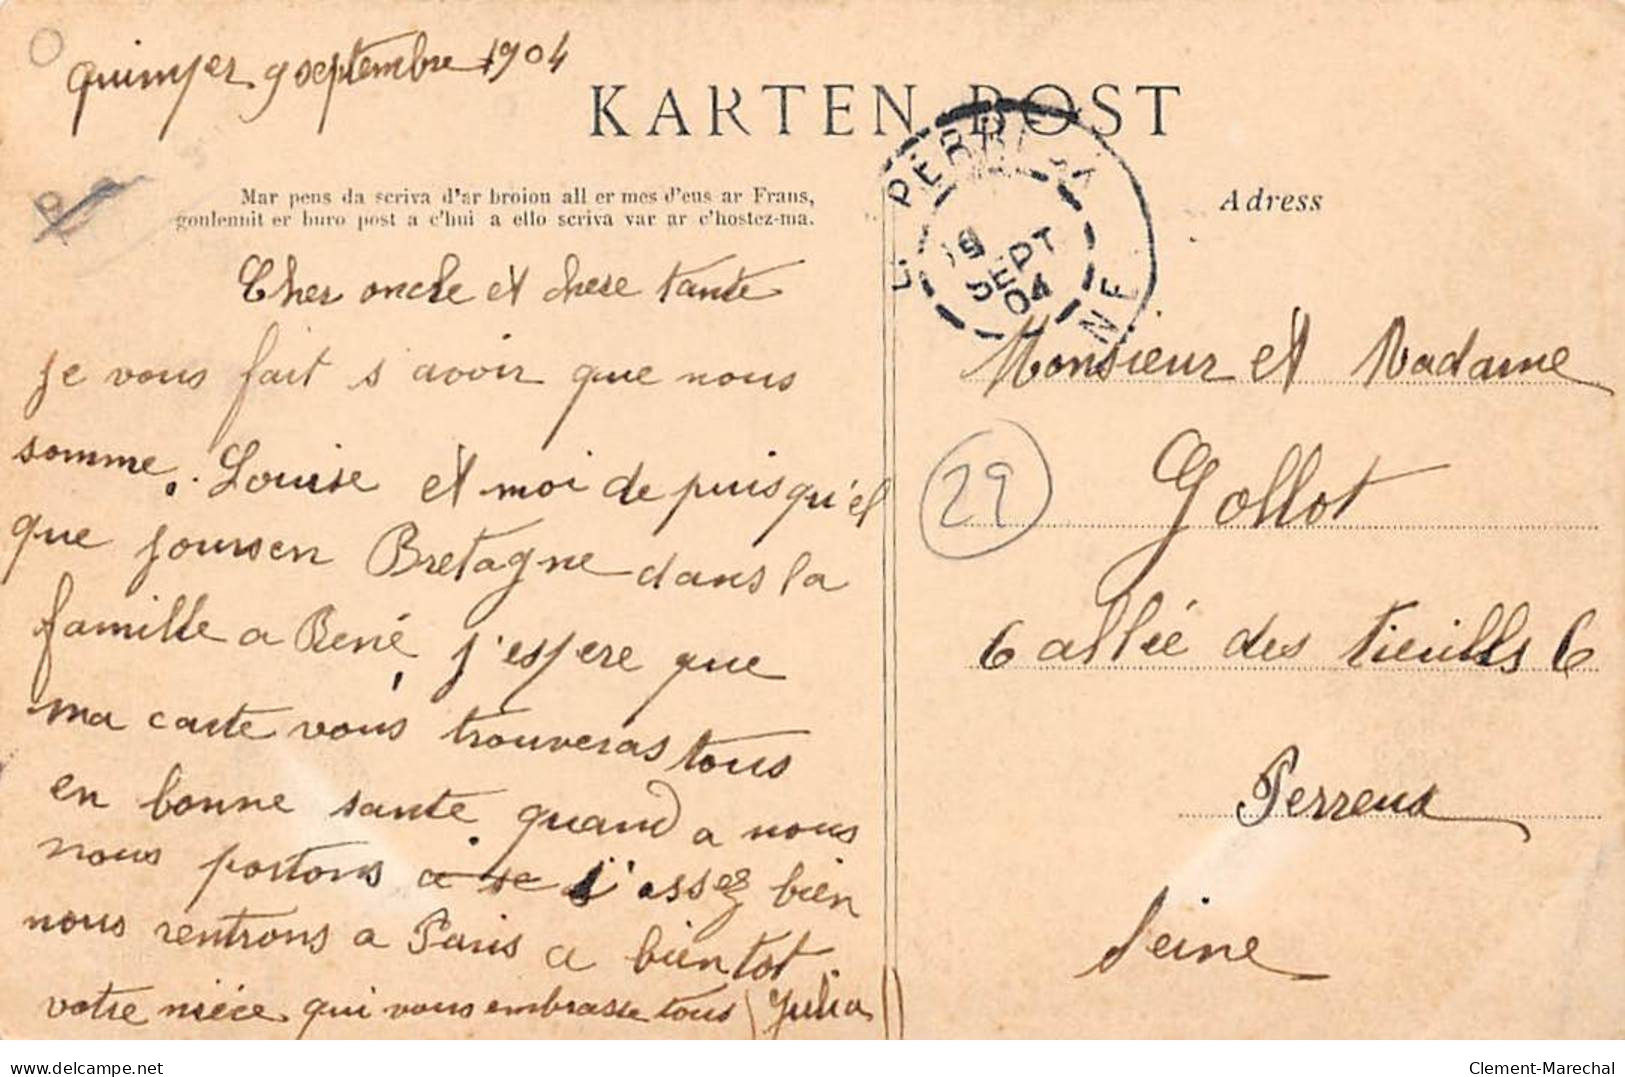 quimper 9 septembre 1904
KARTEN POST
Mar pens da scriva d'ar broion all er mes d'eus ar Frans,
goulennit er buro post a c'hui a ello scriva var ar c'hostez-ma.
Cher oncle et chere tante
je vous fait s avoir que nous
somme. Louise et moi de puis qu'el
que jours en Bretagne dans la
famille a René, j'espere que
ma carte vous trouveras tous
en bonne santé. quand a nous
nous portons assez bien
nous rentrons a Paris a bientot
votre niéce qui vous embrasse tous (Julia)
PERREUX
19
SEPT
04
NE
Adress
Monsieur et Madame
29
Gollot
6 allée des tieulls 6
Perreux
Seine
delcampe.net
Clement-Marechal